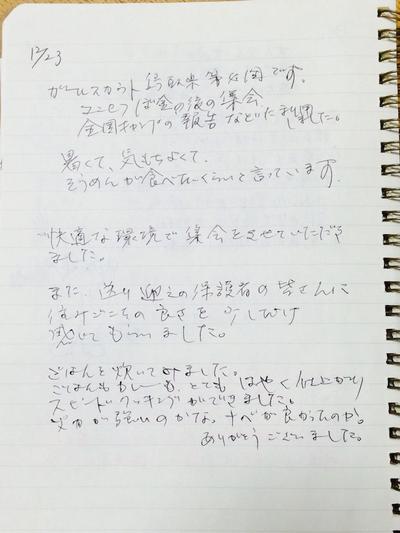 12/23
ガールスカウト鳥取県第4団です。
ユニセフ募金の後の集会、
全国キャンプの報告などいたしました。
暑くて、気もちよくて、
そうめんが食べたいくらいと言っています。
快適な環境で集会をさせていただき
ました。
また、送り迎えの保護者の皆さんに
住みごこちの良さを少しだけ
感じてもらいました。
ごはんを炊いてみました。
ごはんもカレーも、とてもはやく仕上がり
スピードクッキングができました。
火力が強いのかな、ナベが良かったのか。
ありがとうございました。